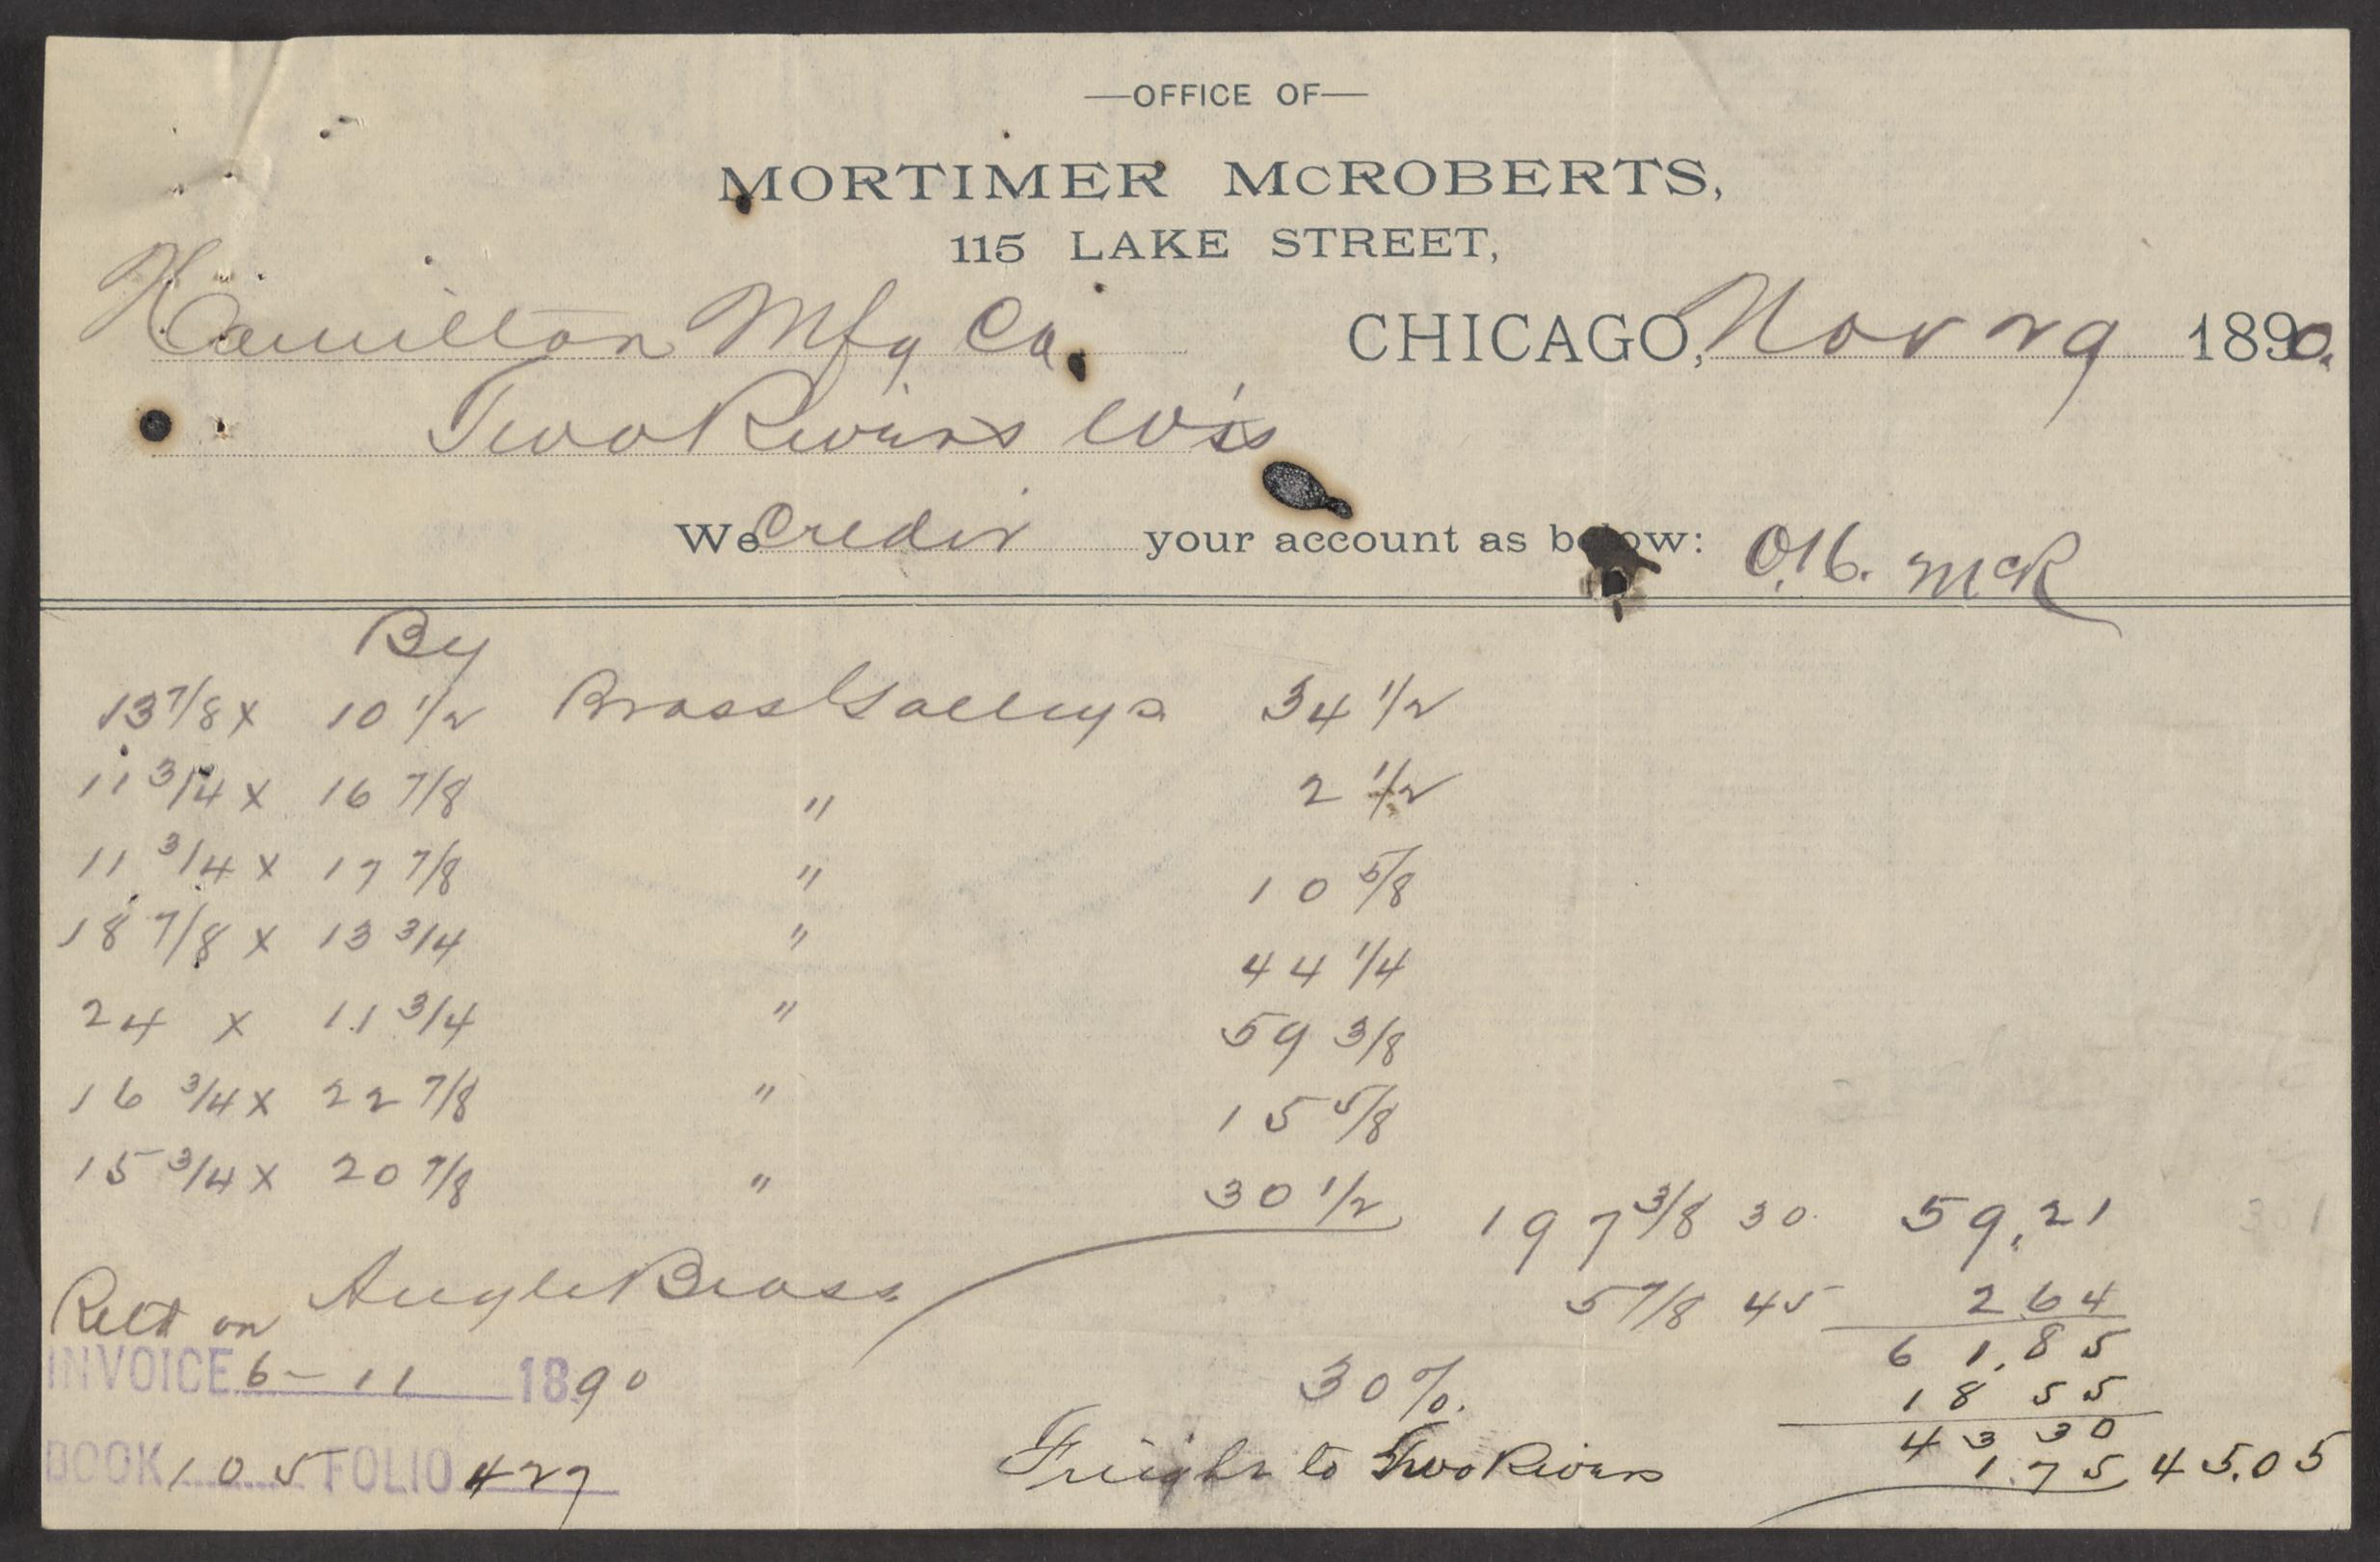 —OFFICE OF—
MORTIMER McROBERTS,
115 LAKE STREET,
Hamilton Mfg Co. CHICAGO, Nov 29 1890.
Two Rivers Wis
We Credit your account as below: O.K. McR
By
13 7/8 x 10 1/2 Brass Galleys 34 1/2
11 3/4 x 16 7/8 " 2 1/2
11 3/4 x 17 7/8 " 10 5/8
18 7/8 x 13 3/4 " 44 1/4
24 x 11 3/4 " 59 3/8
16 3/4 x 22 7/8 " 15 5/8
15 3/4 x 20 7/8 " 30 1/2 197 3/8 30 59.21
Angle Brass 5 7/8 45 2 64
on
61.85
INVOICE 6-11 1890 30%. 18 55
43 30
BOOK 105 FOLIO 427 Freight to Two Rivers 1.75 45.05